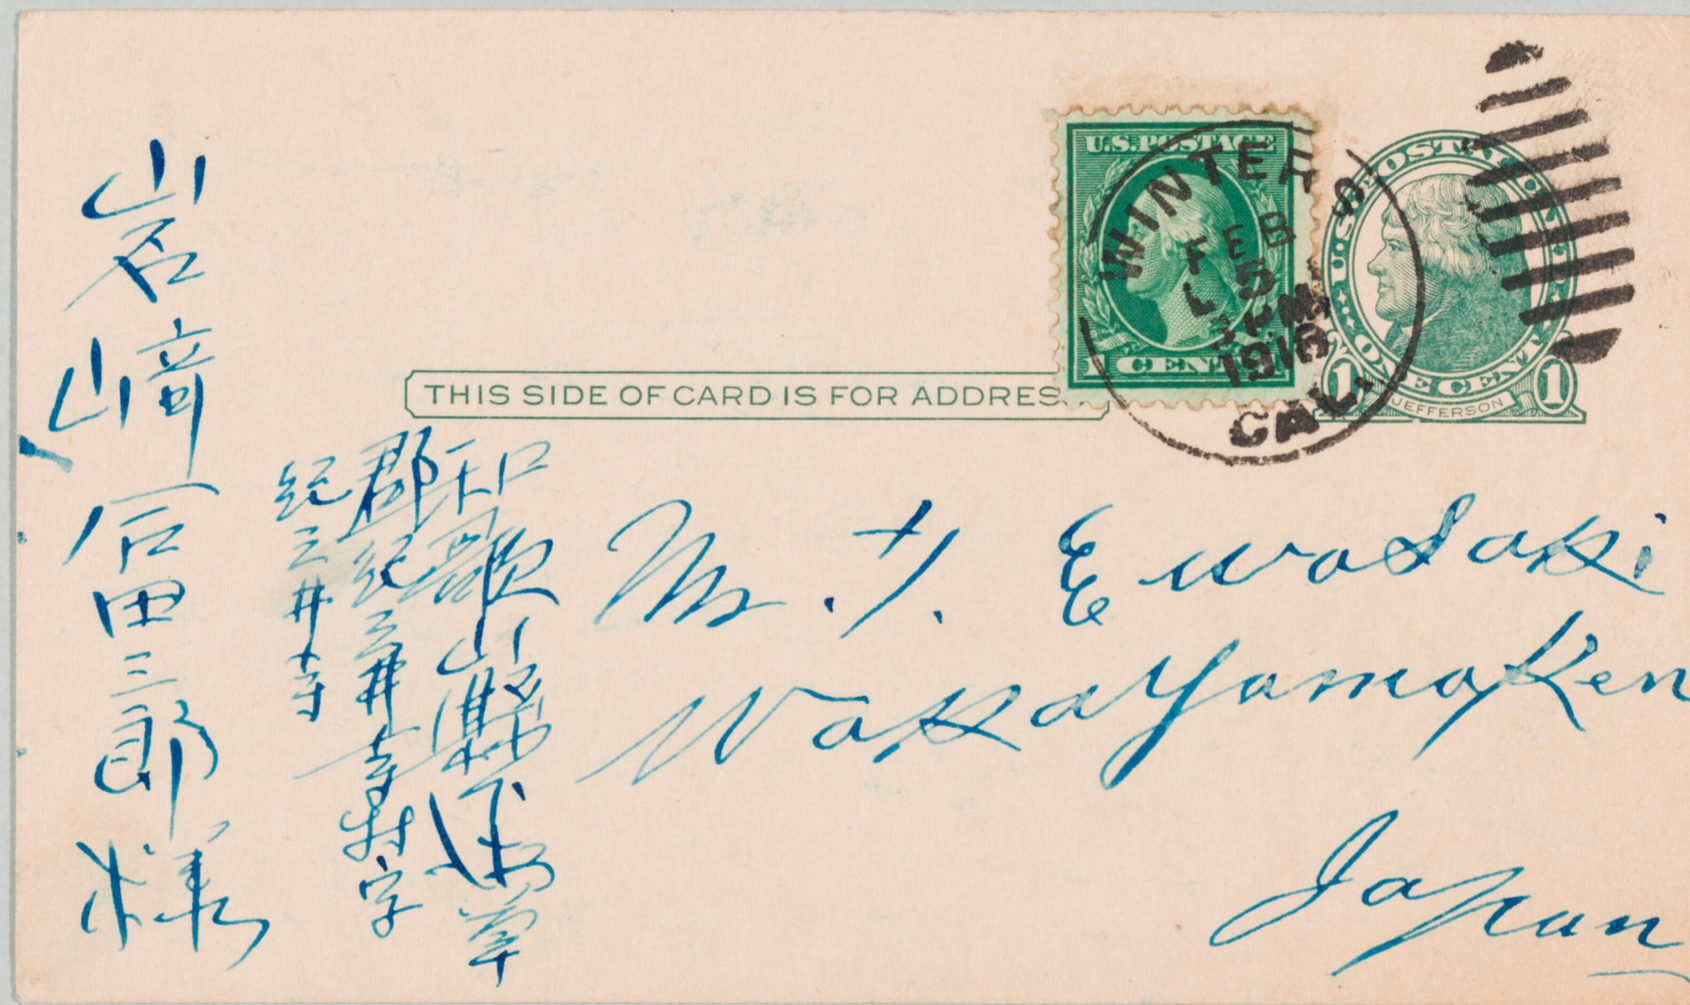 U.S. POSTAGE
1 CENT 1
WINTERS
FEB
5
3 PM
1916
CAL.
U.S. POSTAL
ONE CENT
1 JEFFERSON 1
THIS SIDE OF CARD IS FOR ADDRES
Mr. T. Ewasaki
WakayamaKen
Japan
和歌山縣海草
郡紀三井寺村字
紀三井寺
岩﨑富三郎様